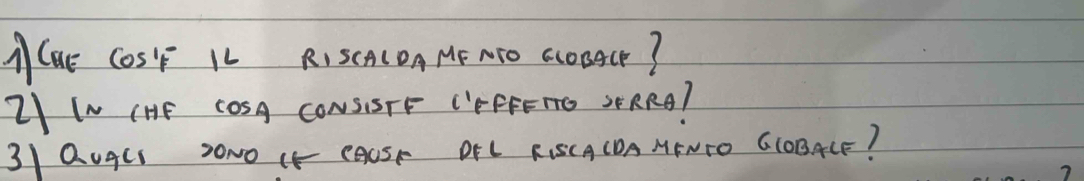 1) CHE COS'E IL RISCALDAMENTO GLOBALE?
2) IN CHE COSA CONSISTE L'EFFETTO SERRA?
3) QUALI SONO LE CAUSE DEL RISCALDAMENTO GLOBALE?